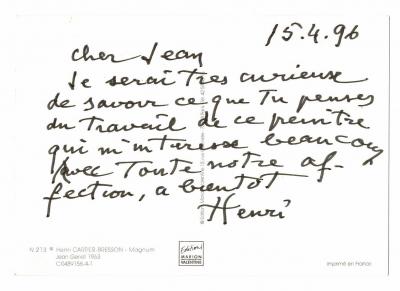 15.4.96
cher Jean
Je serai tres curieuse
de savoir ce que Tu penses
du Travail de ce peintre
qui m'interesse beaucoup
Avec Toute notre af-
fection, a bientot
Henri
N.213 ® Henri CARTIER-BRESSON - Magnum
Jean Genet 1963
Editions
MARION
VALENTINE
Imprimé en France